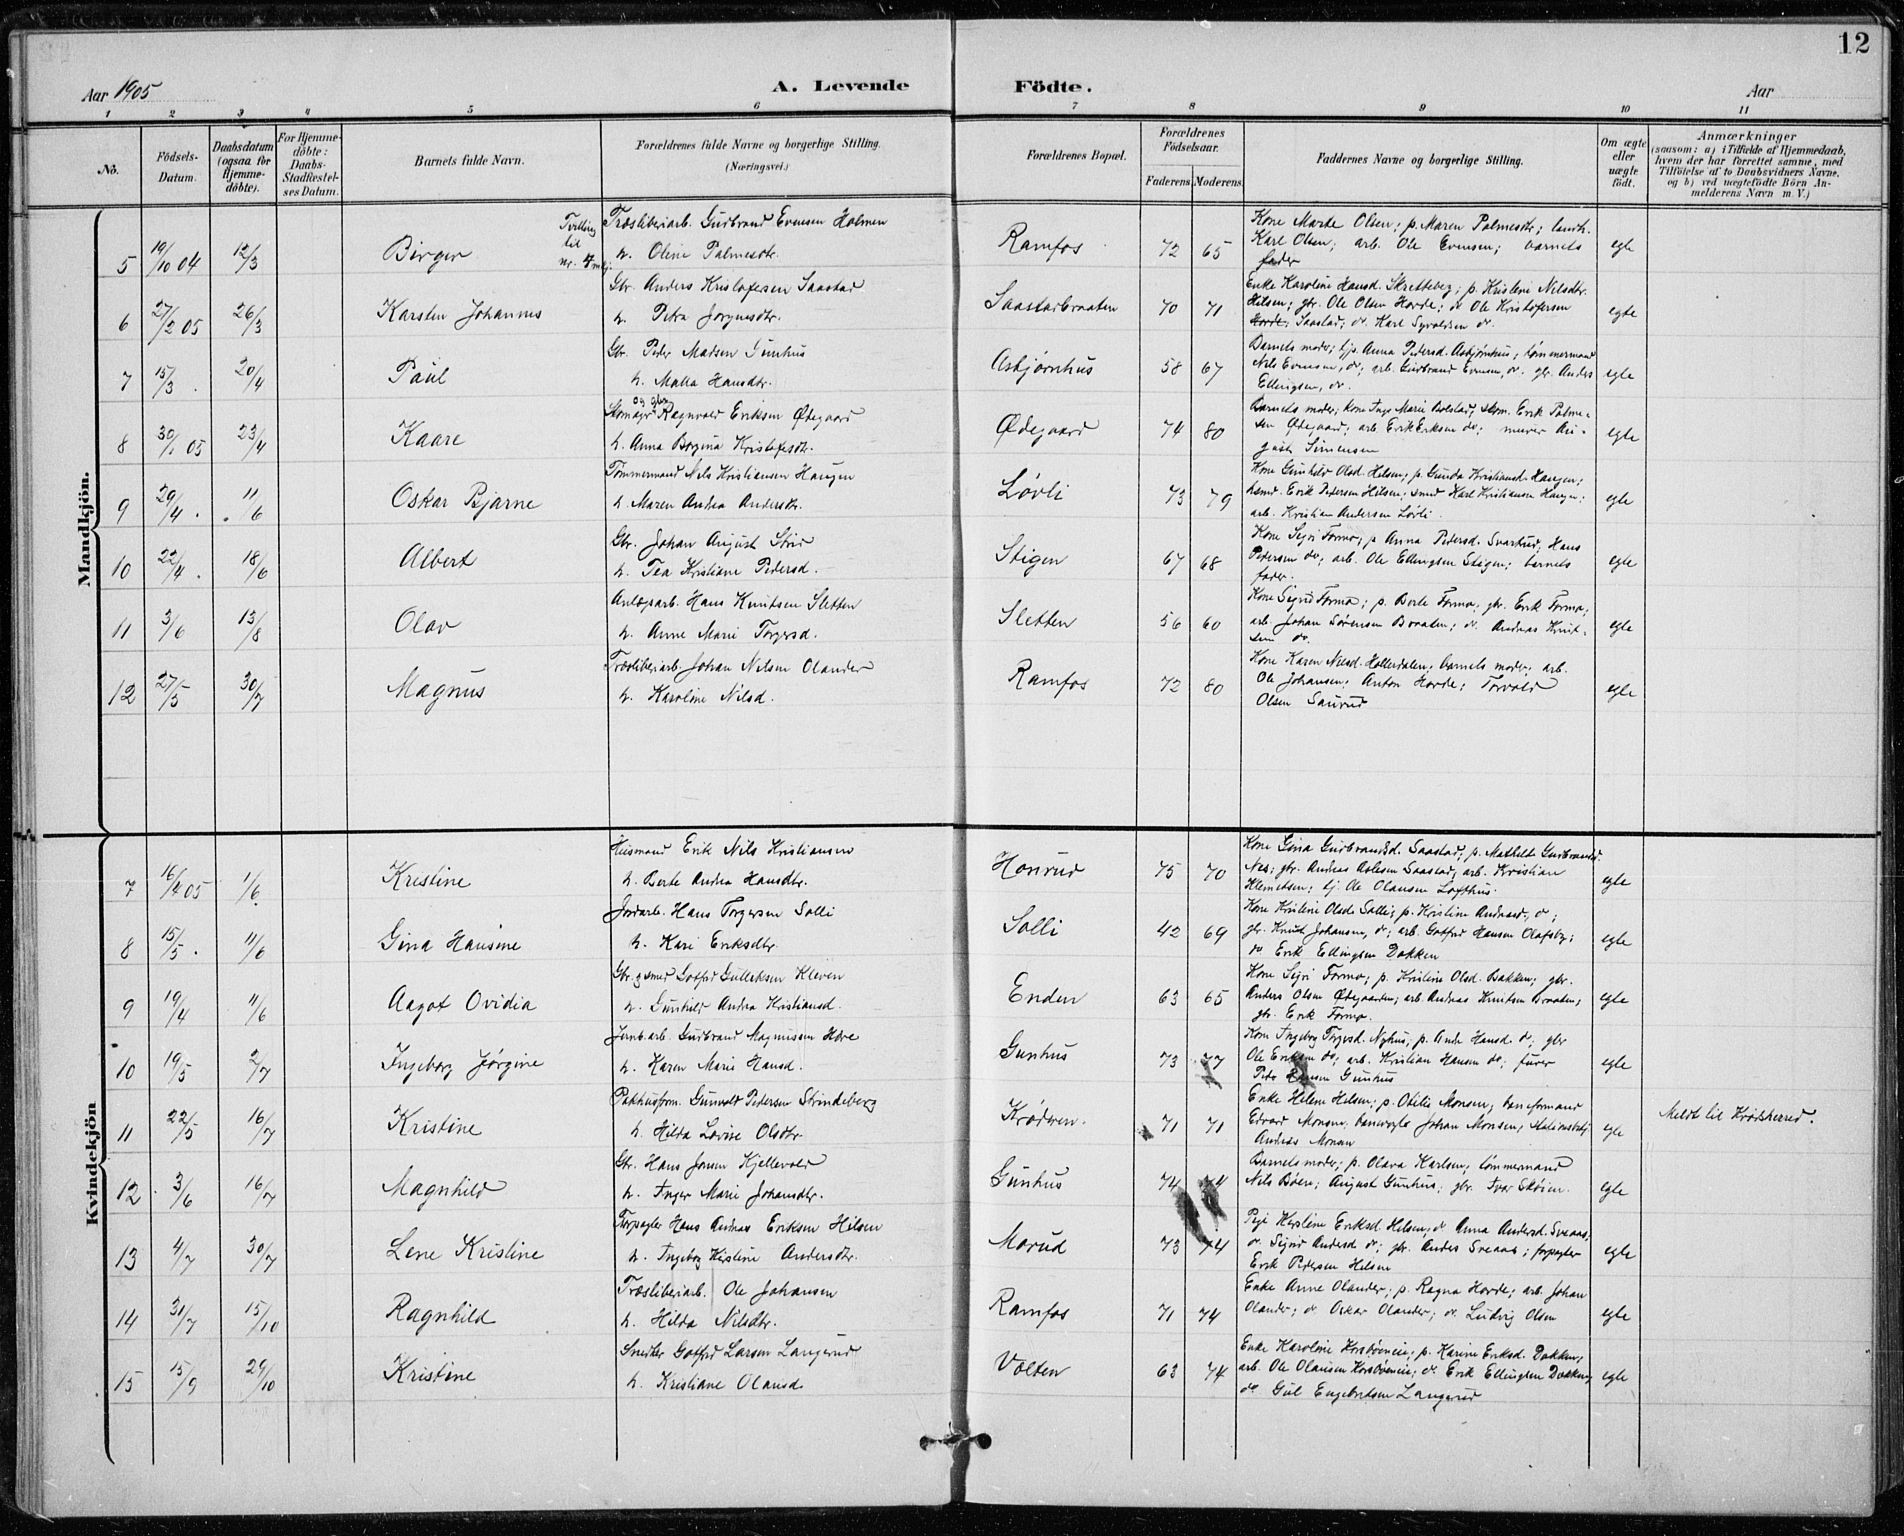 12
Aar 1905
A. Levende Födte.
Aar
1 2 3 4 5 6 7 8 9 10 11
No.
Födsels-Datum.
Daabsdatum (ogsaa for Hjemmedöbte).
For Hjemmedöbte: Daabs-Stadfæstelses Datum.
Barnets fulde Navn.
Forældrenes fulde Navne og borgerlige Stilling. (Næringsvei.)
Forældrenes Bopæl.
Forældrenes Födselsaar.
Faderens Moderens
Faddernes Navne og borgerlige Stilling.
Om ægte eller uægte födt.
Anmærkninger
(saasom: a) i Tilfælde af Hjemmedaab, hvem der har forrettet samme, med Tilföielse af to Daabsvidners Navne, og b) ved uægtefödte Börn Anmelderens Navn m. V.)
Mandkjön.
5 19/10 04 12/3 Birger Tvilling til nr. 4
Træsliberiarb. Gudbrand Evensen Holmen
h. Oline Palmesdtr.
Ramfos 72 65
Kone Marte Olsen; p. Maren Palmesdtr;
Karl Olsen; arb. Ole Evensen; barnets
fader
egte
6 27/2 05 26/3 Karsten Johannes
Gbr. Anders Kristofersen Saastad
h. Petra Jørgensdtr.
Saastadbraaten 70 71
Enke Karoline Hansd. Skretteberg; p. Kristine Nilsdtr.
Hilsen; gbr. Ole Olsen Horde; do Ole Kristofersen
Horde, Saastad; do. Karl Syvertsen do.
egte
7 15/3 . 20/4 Paul
Gbr. Peder Madsen Gunhus
h. Malla Hansdtr.
Asbjørnhus 58 67
Barnets moder; tjp. Anna Pedersd. Asbjørnhus; tømmermand
Nils Evensen, do; arb. Gudbrand Evensen, do. gbr. Anders
Ellingsen, do.
egte
8 30/1 05 23/4 Kaare
Skomager og gbr. Ragnvald Eriksen Ødegaard
h. Anna Bergina Kristofersdtr.
Ødegaard 74 80
Barnets moder; kone Inge Marie Bolstad, skom. Erik Palme-
sen Ødegaard; arb. Erik Eriksen do; murer Au-
gust Simensen
egte
9 29/4 . 11/6 Oskar Bjarne
Tømmermand Nils Kristiansen Haugen
h. Maren Andrea Andersdtr.
Løvli 73 79
Kone Gunhild Olsd. Hilsen; p. Gunda Kristiansd. Haugen;
husmd. Erik Pedersen Hilsen; smed Karl Kristiansen Haugen;
arb. Kristian Andersen Løvli.
egte
10 22/4 . 18/6 Albert
Gbr. Johan August Strid
h. Tea Kristiane Pedersd.
Stigen 67 68
Kone Sigri Formo; p Anna Pedersd. Svartrud; Hans
Pedersen do; arb. Ole Ellingsen Stigen; barnets
fader.
egte
11 3/6 13/8 Olav
Anlægsarb. Hans Knutsen Sletten
h. Anne Marie Torgersd.
Sletten 56 60
Kone Sigrid Formo; p. Berte Formo, gbr. Erik Formo;
arb. Johan Sørensen Braaten; do. Andreas Knut-
sen do.
egte
12 27/5 30/7 Magnus
Træsliberiarb. Johan Nilsen Olander
h. Karoline Nilsd.
Ramfos 72 80
Kone Karen Nilsd. Hollerdalen, barnets moder; arb.
Ole Johansen; Anton Horde; Torvald
Olsen Saurud
egte
Kvindekjön
7 16/4 05 1/6 Kristine
Husmand Erik Nils Kristiansen
h. Berte Andrea Hansdtr.
Honrud 75 70
Kone Gina Gudbrandsd. Saastad; p. Mathilde Gudbrandsd.
Nes; gbr. Andreas Saastad, arb. Kristian
Klemetsen; tj. Ole Olausen Lofthus.
egte
8 15/5 . 11/6 Gina Hansine
Jordarb. Hans Torgersen Solli
h. Kari Eriksdtr.
Solli 42 69
Kone Kristine Olsd. Solli; p. Kristine Andersd., do;
gbr. Knut Johansen, do; arb. Gotfred Hansen Olafsby;
do Erik Ellingsen Dokken
egte
9 19/4 11/6 Aagot Ovidia
Gbr. g smed Gotfred Gulleksen Kleven
h. Gunhild Andrea Kristiansd.
Enden 63 65
Kone Sigri Formo; p. Kristine Olsd. Bakken; gbr.
Anders Olsen Ødegaarden; arb. Andreas Knutsen Braaten;
gbr. Erik Formo.
egte
10 19/5 2/7 Ingeborg Jørgine
Jernb.arb. Gudbrand Magnussen Hove
h. Karen Marie Hansd.
Gunhus 73 77
Kone Ingeborg Torgersd. Nyhus; p. Ande Hansd. do; gbr
Ole Eriksen do; arb. Kristian Hansen do; furer
Peder Hansen Gunhus
egte
11 22/5 16/7 Kristine
Pakhusform. Gunvald Pedersen Strindeberg
h. Hilda Lovise Olsdtr.
Krøderen. 71 71
Enke Helene Hilsen; p. Otilie Monsen; baneformand
Edvard Monsen; banevogter Johan Monsen; stationsbetj.
Andreas Monsen
egte
Meldt til Krødsherred.
12 3/6 16/7 Magnhild
Gbr. Hans Jonsen Kjellevold
h. Inger Marie Johansdtr.
Gunhus 74 74
Barnets moder; p. Olava Karlsen, tømmermand
Nils Böen; August Gunhus; gbr. Ivar Skøien.
egte
13 4/7 30/7 Lene Kristine
Torpagter Hans Andreas Eriksen Hilsen
h. Ingeborg Kirstine Andersdtr.
Morud 73 74
Pige Kirstine Eriksd. Hilsen; do Anna Andersd. Sveaas;
do. Sigrid Andersd. do; gbr. Anders Sveaas; forpagter
Erik Pedersen Hilsen
egte
14 31/7 15/10 Ragnhild
Træsliberiarb. Ole Johansen
h. Hilda Nilsdtr.
Ramfos 71 74
Enke Anne Olander; p. Ragna Horde; arb. Johan
Olander; do Oskar Olander; do. Ludvig Olsen
egte
15 15/9 29/10 Kristine
Snedker Gotfred Larsen Langerud
h. Kristiane Olausd.
Volten 63 74
Enke Karoline Korsbøeneie; p. Karine Eriksd. Dokken;
arb. Ole Olausen Korsbøeneie; do. Erik Ellingsen Dokken;
do Gul Engebretsen Langerud
egte